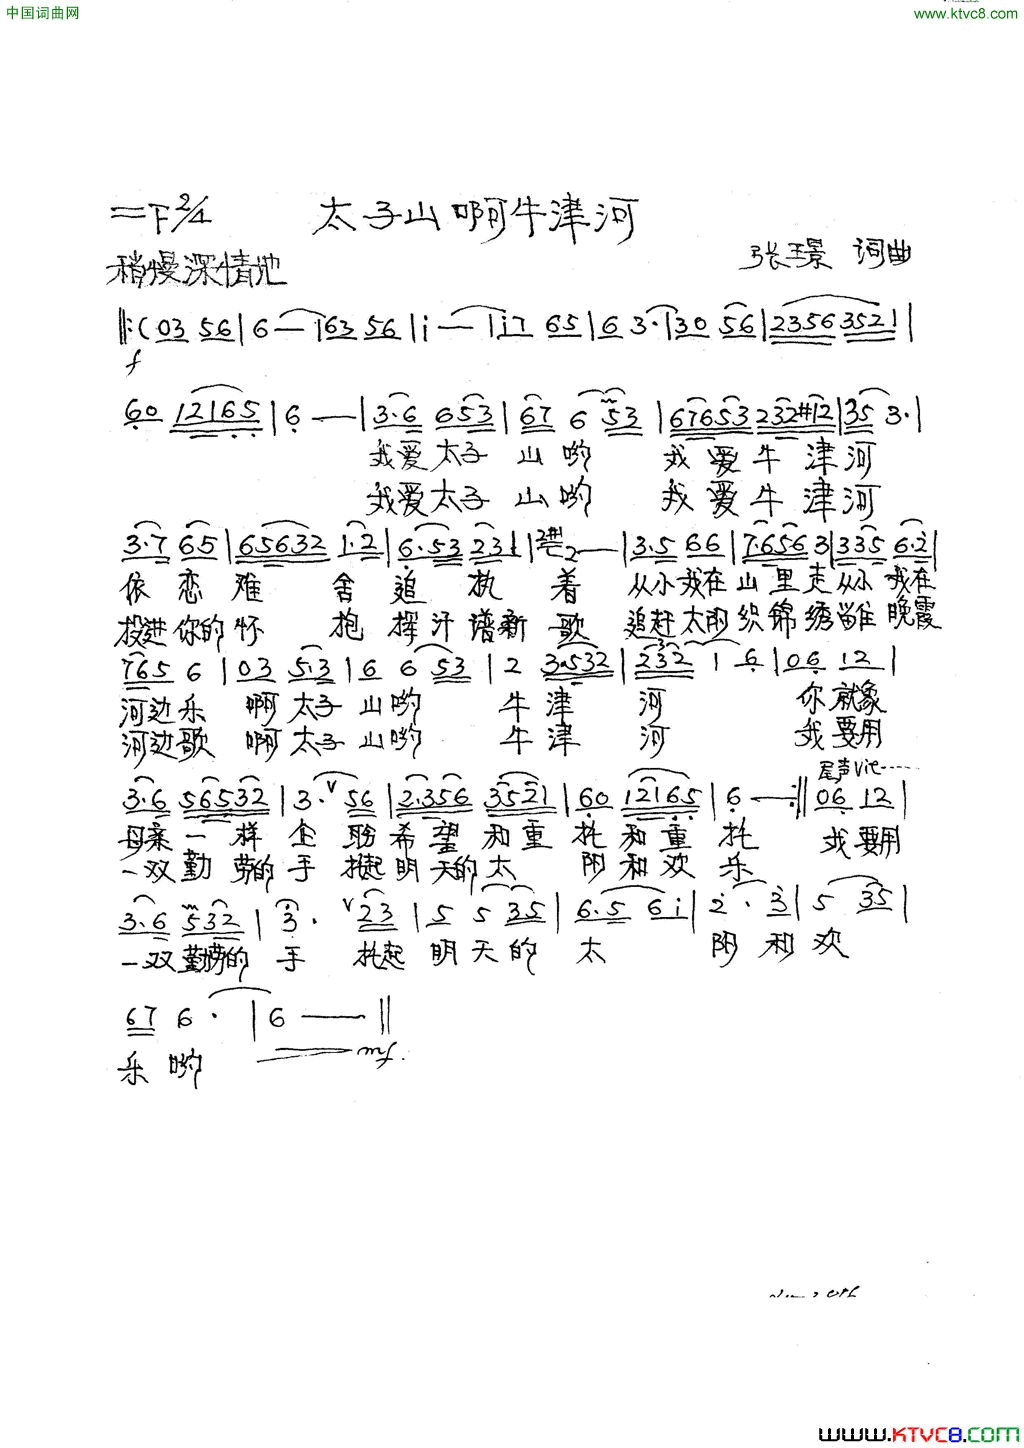 中国词曲网
www.ktvc8.com
=F 2/4 太子山啊牛津河
张璟 词曲
稍慢深情地
‖:( 03 56 | 6 — | 63 56 | i — | i7 65 | 6 3· | 30 56 | 2356 3521 |
f
60 12165 | 6 — | 3·6 653 | 67 6 53 | 67653 232#12 | 35 3· |
我爱太子 山哟 我爱牛津河
我爱太子 山哟 我爱牛津河
3·7 65 | 65632 1·2 | 6·53 231 | 2 — | 3·5 66 | 7·656 3 | 335 6·2 |
依恋难 舍追 执 着 从小我在山里走从小我在
投进你的怀 抱 挥汗谱新 歌 追赶太阳织锦绣 晚霞
765 6 | 03 5·3 | 6 6 53 | 2 3·532 | 232 1 6 | 06 12 |
河边乐 啊太子山哟 牛津 河 你就象
河边歌 啊太子山哟 牛津 河 我要用
尾声
3·6 56532 | 3· V 56 | 2·356 3521 | 60 12165 | 6 — :‖ 06 12 |
母亲一样 企盼希望和重 托和重 托 我要用
一双勤劳的手 托起明天的太 阳和欢 乐
3·6 532 | 3· V 23 | 5 5 35 | 6·5 6i | 2· 3 | 5 35 |
一双勤劳的 手 托起 明天的 太 阳和欢
67 6· | 6 — ‖
mf.
乐哟
www.KTVC8.com